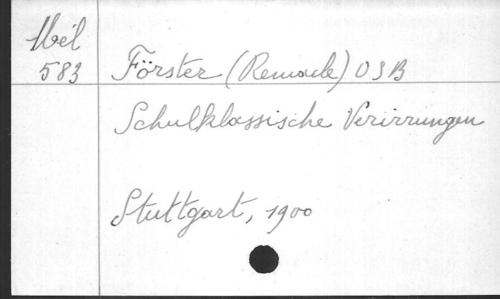 Mél
583
Förster (Remacle) OSB
Schulklassische Verirrungen
Stuttgart, 1900